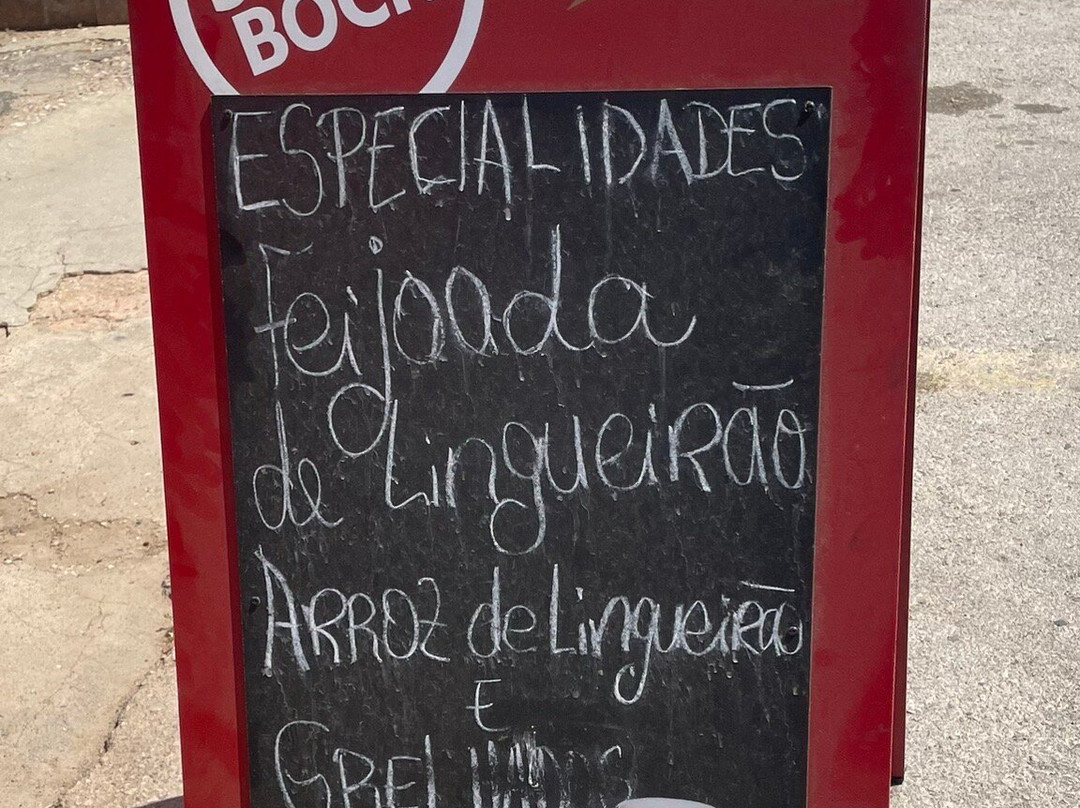 BOCK
ESPECIALIDADES
Feijoada
de Lingueirão
ARROZ de Lingueirão
E
GRELHADOS